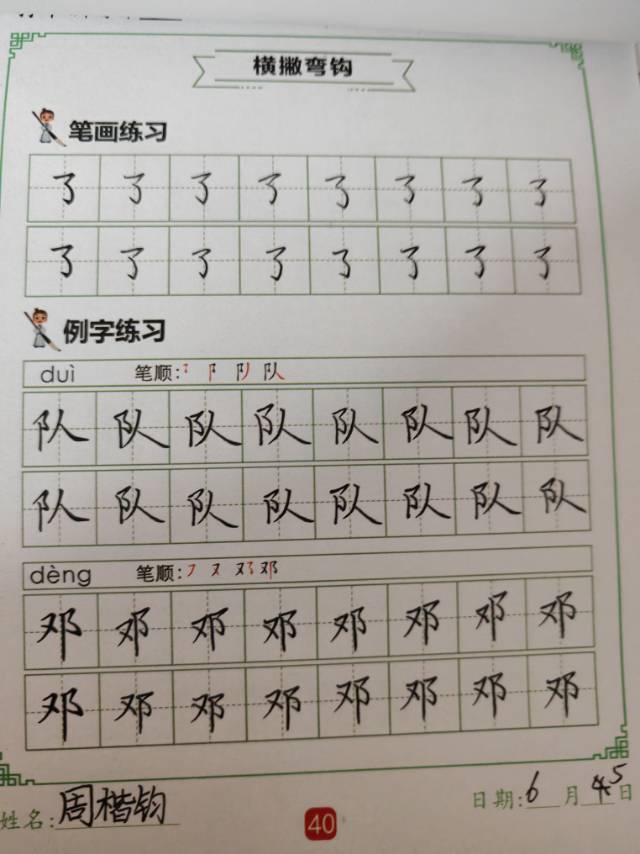 横撇弯钩
笔画练习
㇌ ㇌ ㇌ ㇌ ㇌ ㇌ ㇌ ㇌
㇌ ㇌ ㇌ ㇌ ㇌ ㇌ ㇌ ㇌
例字练习
duì 笔顺: ㇌ 阝 队
队 队 队 队 队 队 队 队
队 队 队 队 队 队 队 队
dèng 笔顺: ㇇ 又 邓
邓 邓 邓 邓 邓 邓 邓 邓
邓 邓 邓 邓 邓 邓 邓 邓
姓名: 周楷钧 40 日期: 6 月 5 日